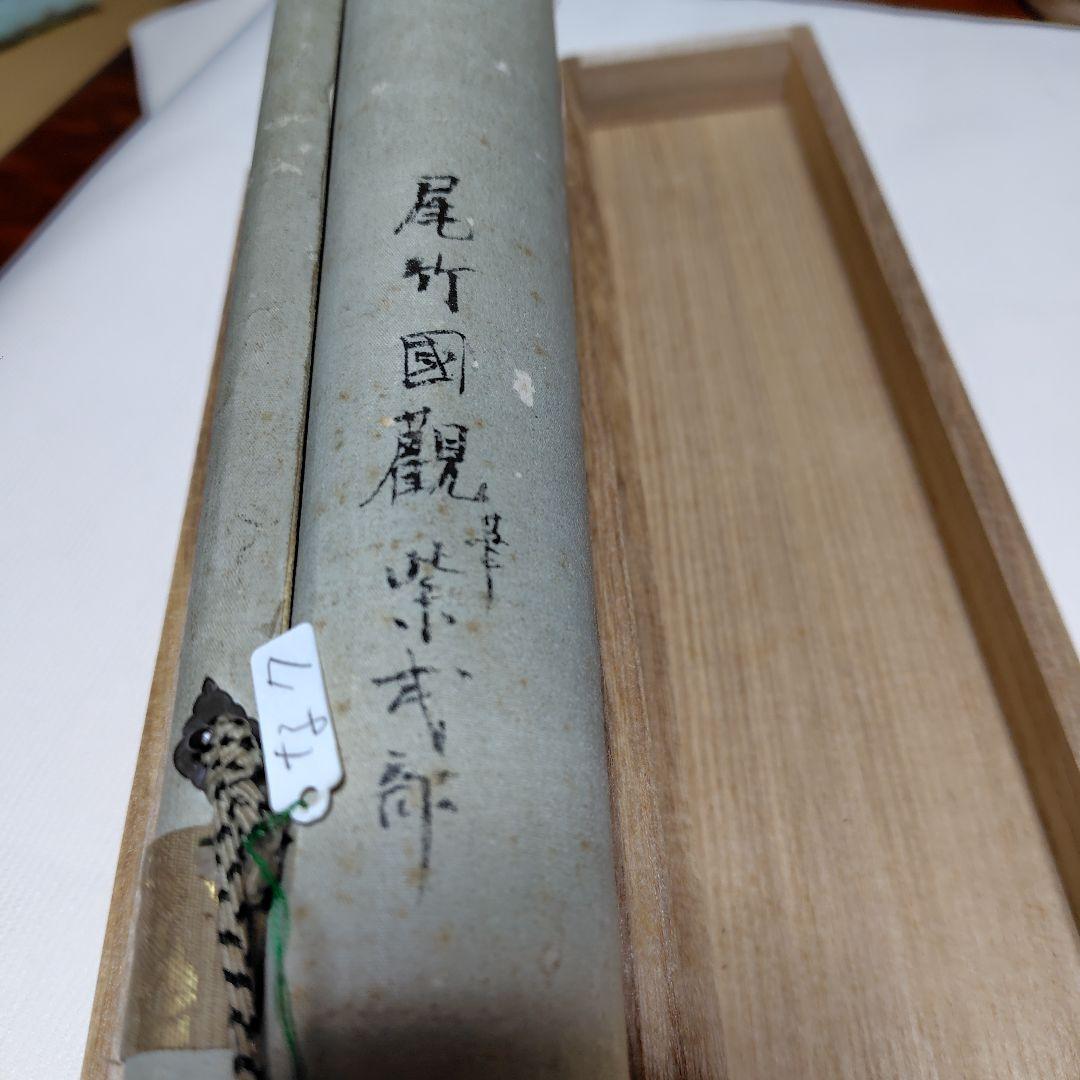 尾竹國觀筆
紫式部